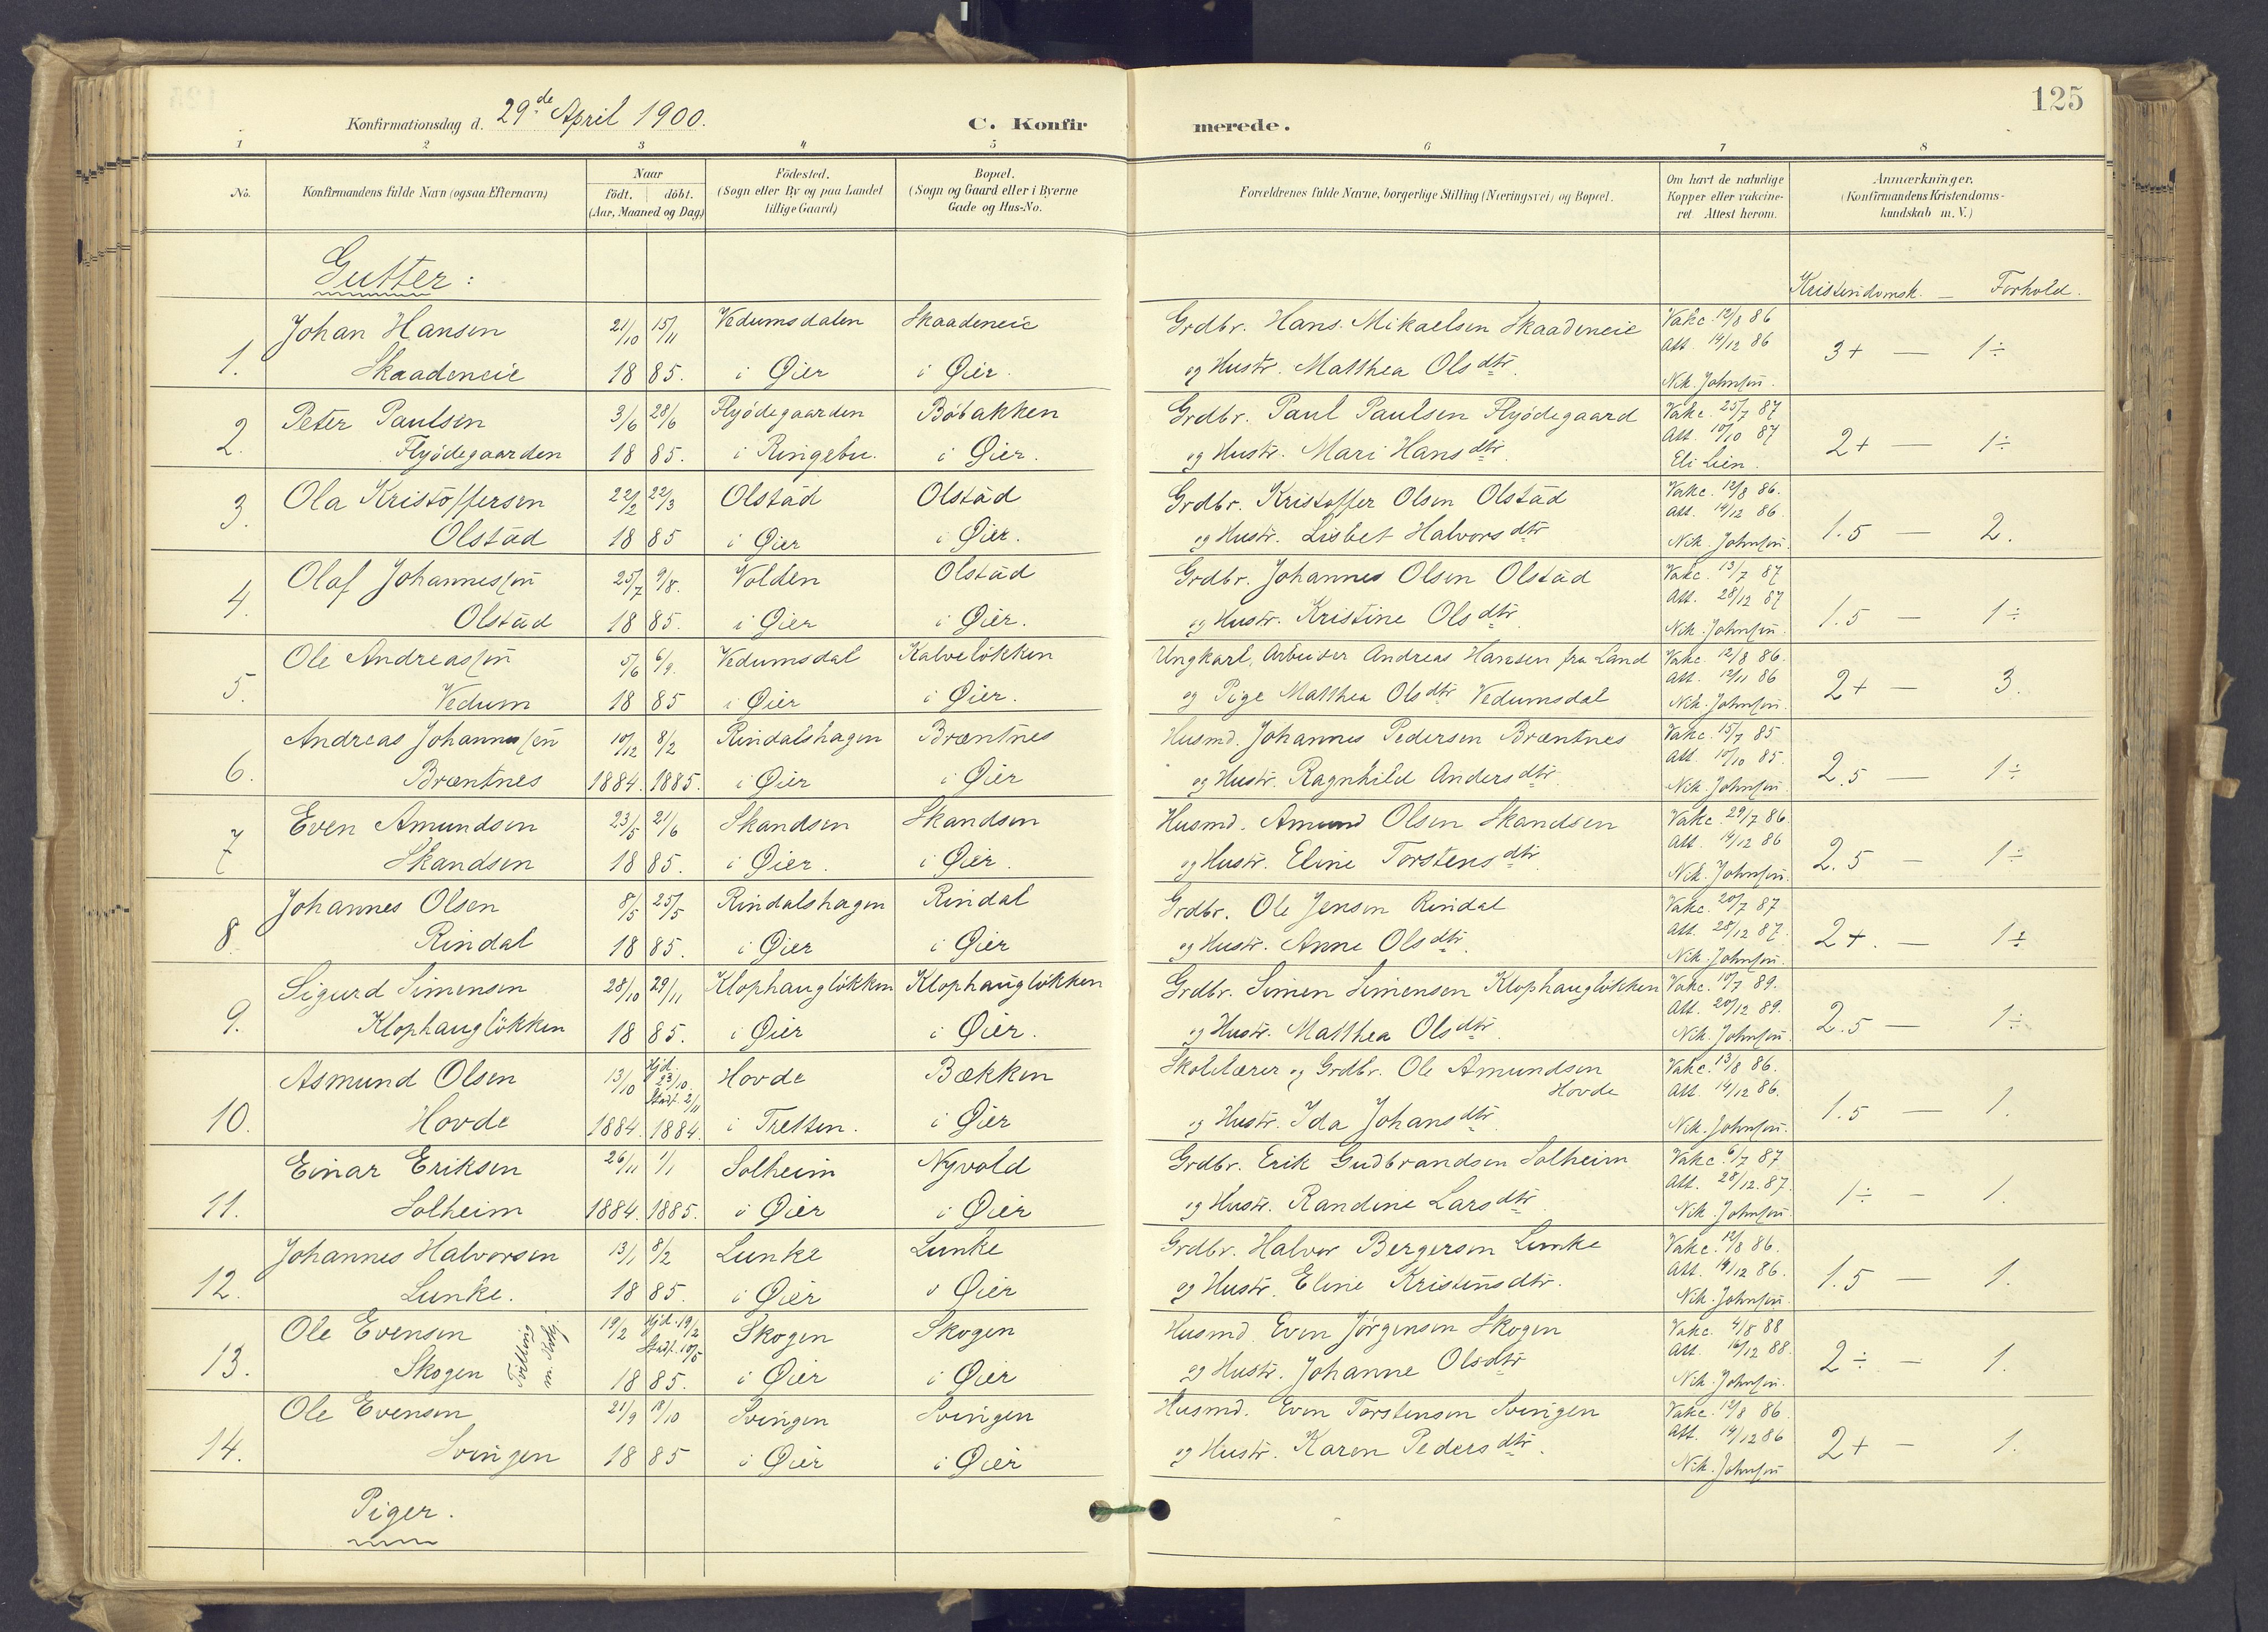 125
Konfirmationsdag d. 29de April 1900.
C. Konfirmerede.
1 2 3 4 5 6 7 8
No.
Konfirmandens fulde Navn (ogsaa Efternavn)
Naar
födt. döbt.
(Aar, Maaned og Dag)
Födested.
(Sogn eller By og paa Landet
tillige Gaard)
Bopæl.
(Sogn og Gaard eller i Byerne
Gade og Hus-No.
Forældrenes fulde Navne, borgerlige Stilling (Næringsvei) og Bopæl.
Om havt de naturlige
Kopper eller vakcine-
ret. Attest herom.
Anmærkninger.
(Konfirmandens Kristendoms-
kundskab m. V.)
Gutter:
Kristendomsk. — Forhold.
Johan Hansen 21/10 15/11 Vedumsdalen Skaadeneie Grdbr. Hans Mikaelsen Skaadeneie Vakc. 12/8 86
Att. 14/12 86
1. Skaadeneie 1885. i Øier i Øier. og Hustr. Matthea Olsdtr. Nik. Johnsen. 3+ — 1÷
Peter Paulsen 3/6 28/6 Flyödegaarden Böbakken Grdbr. Paul Paulsen Flyödegaard Vakc. 25/7 87
Att. 10/10 87
2. Flyödegaarden 1885. i Ringebu. i Øier. og Hustr. Mari Hansdtr. Eli Lien. 2+ — 1÷
Ola Kristoffersen 22/2 22/3 Olstad Olstad Grdbr. Kristoffer Olsen Olstad Vakc. 12/8 86.
Att. 14/12 86.
3. Olstad 1885 i Øier i Øier. og Hustr. Lisbet Halvorsdtr Nik. Johnsen. 1.5 — 2.
Olaf Johannessen 25/7 9/8. Volden Olstad Grdbr. Johannes Olsen Olstad Vakc. 13/7 87
Att. 28/12 87
4. Olstad 1885. i Øier i Øier. og Hustr. Kristine Olsdtr. Nik. Johnsen. 1.5 — 1÷
Ole Andreassen 5/6 6/9. Vedumsdal Kalvelökken Ungkarl, Arbeider Andreas Hansen fra Land Vakc. 12/8 86.
Att. 12/11 86
5. Vedum 1885 i Øier i Øier. og Pige Matthea Olsdtr Vedumsdal Nik. Johnsen. 2+ — 3.
Andreas Johannessen 10/12 8/2 Rindalshagen Bræntnes Husmd. Johannes Pedersen Bræntnes Vakc. 15/7 85
Att. 10/10 85.
6. Bræntnes 1884. 1885. i Øier i Øier og Hustr. Ragnhild Andersdtr. Nik. Johnsen. 2.5 — 1÷
Even Amundsen 23/5 21/6 Skandsen Skandsen Husmd. Amund Olsen Skandsen Vakc. 29/7 86.
Att. 14/12 86
7 Skandsen 1885. i Øier. i Øier. og Hustr. Eline Torstensdtr Nik. Johnsen. 2.5 — 1÷
Johannes Olsen 8/5 25/5 Rindalshagen Rindal Grdbr. Ole Jensen Rindal Vakc. 20/7 87
Att. 28/12 87.
8. Rindal 1885. i Øier i Øier og Hustr. Anne Olsdtr. Nik. Johnsen. 2+. — 1÷
Sigurd Simensen 28/10 29/11 Klophauglökken Klophauglökken Grdbr. Simen Simensen Klophauglökken Vakc. 10/7 89.
Att. 20/12 89.
9. Klophauglökken 1885. i Øier i Øier. og Hustr. Matthea Olsdtr. Nik. Johnsen. 2.5 — 1÷
Asmund Olsen 13/10 Hjd. 23/10. Stadf. 2/11 Hovde Bækken Skolelærer og Grdbr. Ole Amundsen Vakc. 13/8 86.
Hovde Att. 14/12 86.
10. Hovde 1884. 1884. i Tretten. i Øier og Hustr. Ida Johansdtr. Nik. Johnsen. 1.5 — 1.
Einar Eriksen 26/11 1/1 Solheim Nyvold Grdbr. Erik Gudbrandsen Solheim Vakc. 6/7 87
Att. 28/12.87.
11. Solheim 1884. 1885. i Øier i Øier og Hustr. Randine Larsdtr. Nik. Johnsen. 1÷ — 1.
Johannes Halvorsen 13/1 8/2 Lunke Lunke Grdbr. Halvor Bergersen Lunke Vakc. 12/8 86.
Att. 14/12 86.
12. Lunke. 1885. i Øier i Øier og Hustr. Eline Kristensdtr. Nik. Johnsen. 1.5 — 1.
Ole Evensen 19/2 Hjd. 19/2 Stadf. 10/5 Skogen Skogen Husmd Even Jörgensen Skogen Vakc. 4/8 88
Att. 16/12 88.
13. Skogen 1885. i Øier i Øier og Hustr. Johanne Olsdtr Nik. Johnsen. 2÷ — 1.
Ole Evensen 21/9 18/10 Svingen Svingen Husmd. Even Torstensen Svingen Vakc. 12/8 86.
Att. 14/12 86
14. Svingen 1885 i Øier i Øier og Hustr. Karen Pedersdtr. Nik. Johnsen 2+ — 1.
Piger.